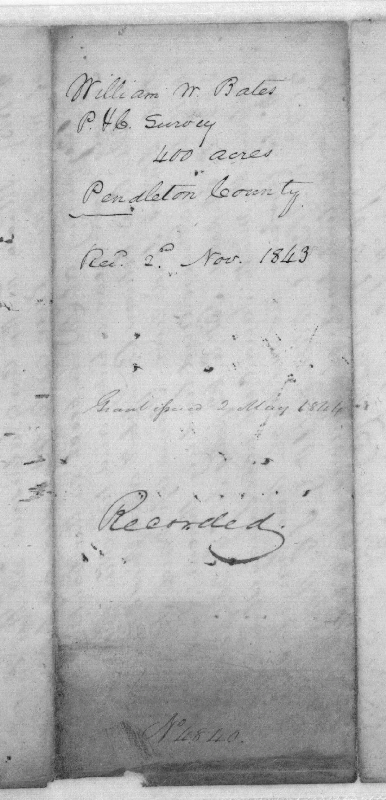 William W. Bates
P. & C. Survey
400 acres
Pendleton County
Recd. 2d Nov. 1843
Grant issued 2 May 1844
Recorded.
No 4840.